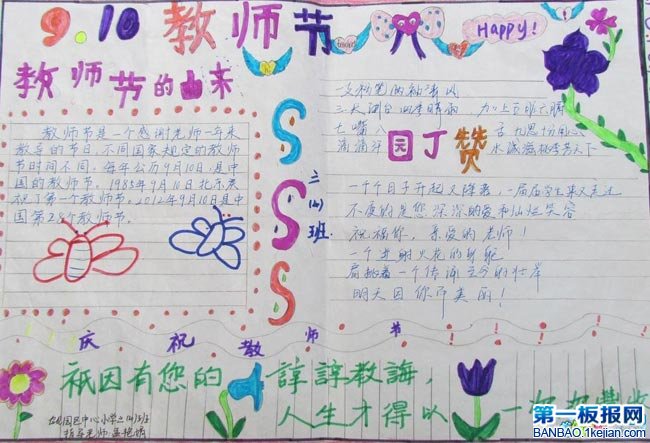 9.10 教师节
Happy!
教师节的由来
教师节是一个感谢老师一年来
教导的节日,不同国家规定的教师
节时间不同,每年公历9月10日,是中
国的教师节。1985年9月10日北京庆
祝了第一个教师节。2012年9月10日是中
国第28个教师节。
三(4)班
一支粉笔两袖清风
三尺讲台四季晴雨 加上五
七嘴八
滴滴汗
园丁赞
九思十分
水滋润桃李芳天下
一个个日子升起又降落,一届届学生来又走过
不变的是您深深的爱和灿烂笑容
祝福你,亲爱的老师!
一个迸射火花的
肩挑着一个传递生命的
明天因你而美丽!
庆祝教师节
祇因有您的諄諄教誨,
人生才得以一次次豐收
中心小学三(4)班
指导老师
第一板报网
BANBAO.1kejian.com